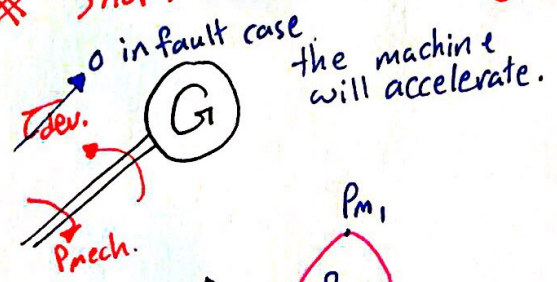 #
0 in fault case
the machine
will accelerate.
G
Tdev.
Pmech.
Pm1